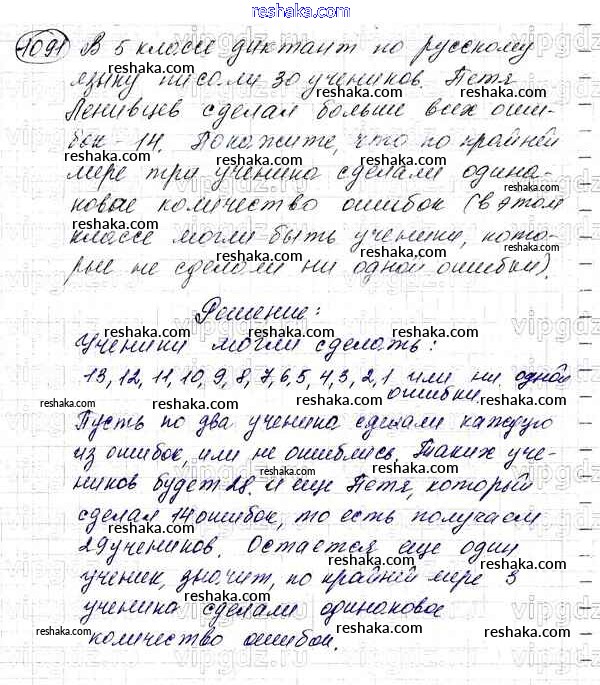 reshaka.ru
1091 В 5 классе диктант по русскому
языку писали 30 учеников. Петя
Ленивцев сделал больше всех оши-
бок - 14. Покажите, что по крайней
мере три ученика сделали одина-
ковое количество ошибок (в этом
классе могли быть ученики, кото-
рые не сделали ни одной ошибки).
Решение:
Ученики могли сделать:
13, 12, 11, 10, 9, 8, 7, 6, 5, 4, 3, 2, 1 или ни одной
ошибки
Пусть по два ученика сделали каждую
из ошибок, или не ошиблись. Таких уче-
ников будет 28. И еще Петя, который
сделал 14 ошибок, то есть получаем
29 учеников. Остается еще один
ученик, значит, по крайней мере 3
ученика сделали одинаковое
количество ошибок.
reshaka.ru